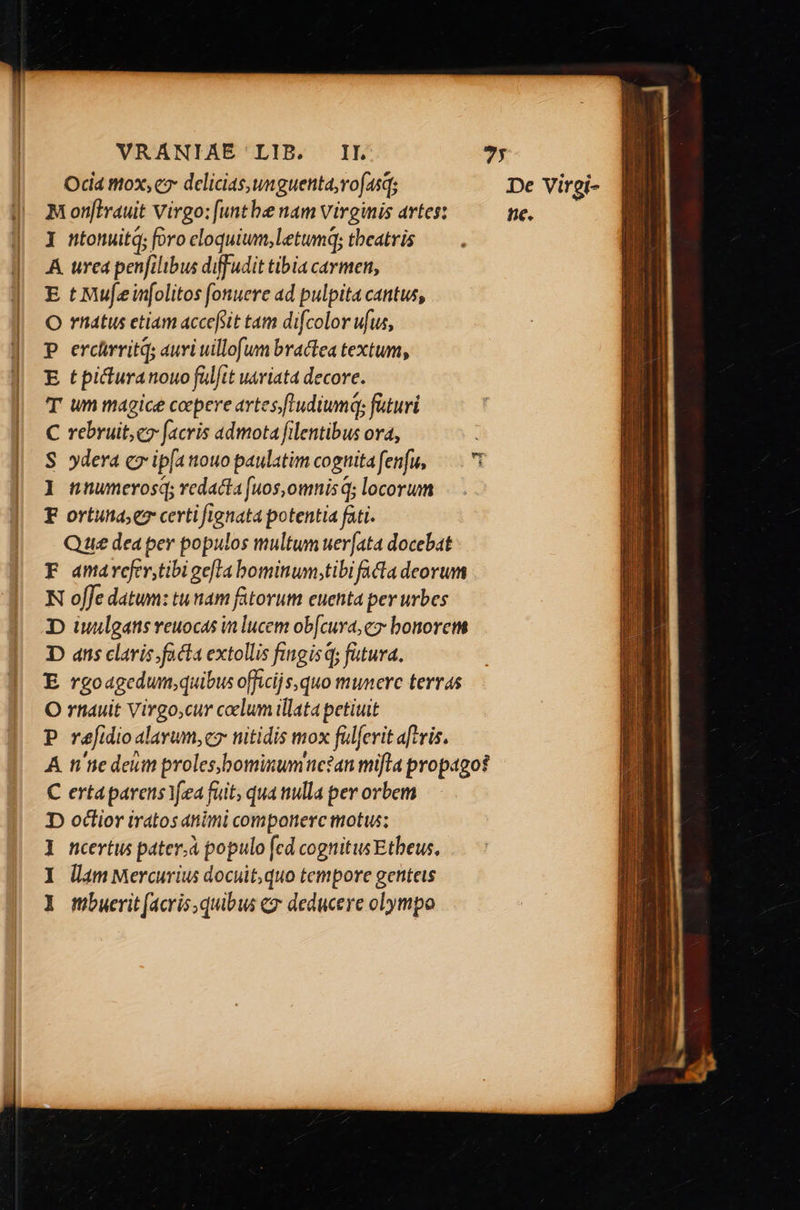 VRANIAE LIB. II. 75
Ocia mox, & delicias, unguenta, rosasq;
De Virgi-
M onstrauit Virgo: sunt hæ nam Virginis artes:
ne.
I ntonuitq; foro eloquium, letumq; theatris
A urea pensilibus diffudit tibia carmen,
E t Musæ insolitos sonuere ad pulpita cantus,
O rnatus etiam accessit tam discolor usus,
P ercurritq; auri uillosum bractea textum,
E t pictura nouo fulsit uariata decore.
T um magicæ cœpere artes, studiumq; futuri
C rebruit, & sacris admota silentibus ora,
S ydera & ipsa nouo paulatim cognita sensu,
I nnumerosq; redacta suos, omnisq; locorum
F ortuna, & certi signata potentia fati.
Quæ dea per populos multum uersata docebat
F ama refer, tibi gesta hominum, tibi facta deorum
N osse datum: tu nam fatorum euenta per urbes
D iuulgans reuocas in lucem obscura, & honorem
D ans claris, facta extollis fingisq; futura.
E rgo agedum, quibus officijs, quo munere terras
O rnauit Virgo, cur cœlum illata petiuit
P ræsidio alarum, & nitidis mox fulserit astris.
A n'ne deûm proles, hominum'ne? an mista propago?
C erta parens Ysæa fuit, qua nulla per orbem
D octior iratos animi componere motus:
I ncertus pater, à populo sed cognitus Etheus.
I llam Mercurius docuit, quo tempore genteis
I mbuerit sacris, quibus & deducere olympo